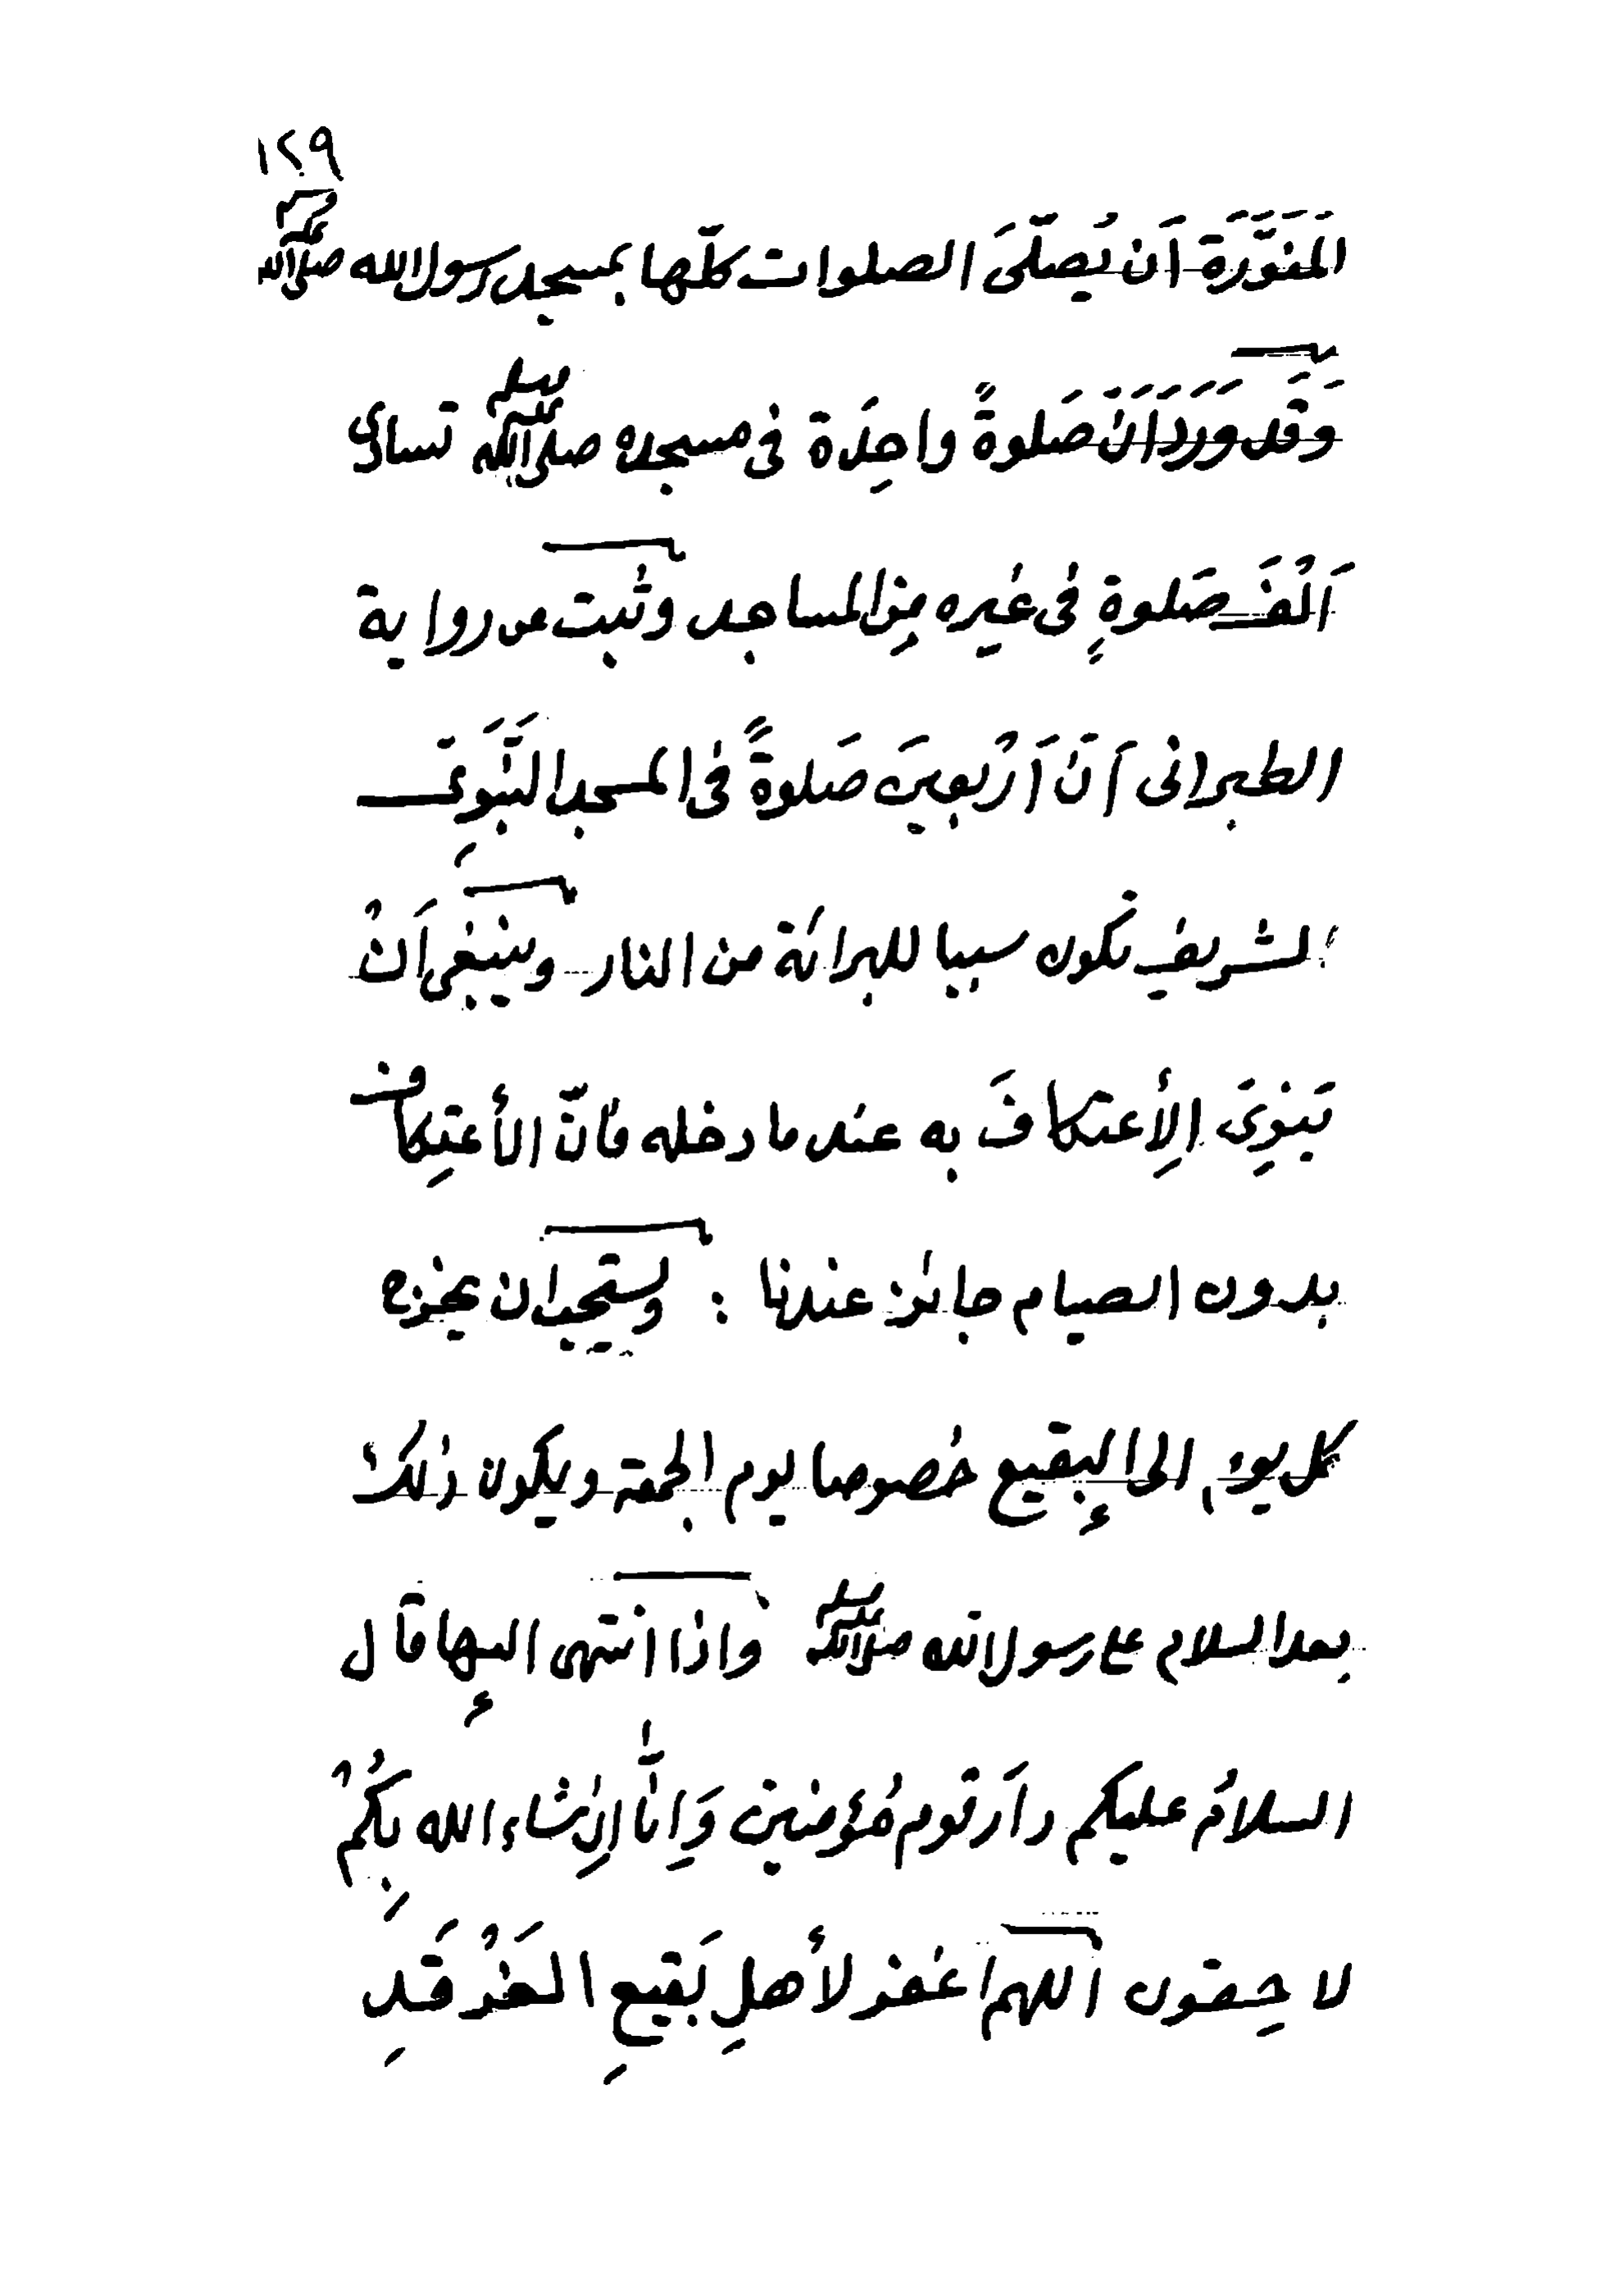 ١٢٩
المَنَوَّرَة اَن يُصَلّىَ الصلوات كلّها بمسجد رسول الله صلى الله عليه وسلم
وَقَد وَرَدَ اَنَّ صَلوةً واحِدَة فى مسجده صلى الله عليه وسلم تساوى
اَلْفَ صَلوةٍ فى غيره مِن المساجد وثبت من رواية
الطبرانى اَنّ اَرْبعينَ صَلوةً فى المسجد النَّبَوِىّ
الشريف تكون سببا للبرائة من النار وينبغى اَنْ
يَنوِىَ الِأعتكافَ به عند ما دخله فانّ الأعتِكاف
بدون الصيام جائز عندنا : ويستحب ان يخرج
كل يوم الى البقيع خصوصا يوم الجمعة ويكون ذلك
بعد السلام على رسول الله صلى الله عليه وسلم واذا انتهى اليها قال
السلامُ عليكم دارَ قوم مُؤمنين وَاِنّا اِن شاء الله بِكُمْ
لاحِقون اللهم اغفر لأهلِ بَقيعِ الغَرْقَدِ